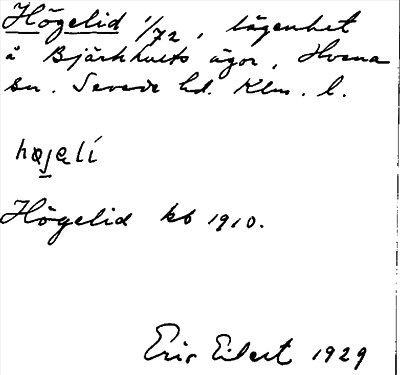 Högelid 1/72, lägenhet
å Björkhults ägor, Hvena
sn. Sevede hd. Klm. l.
højelí
Högelid kb 1910.
Eric Eilert 1929